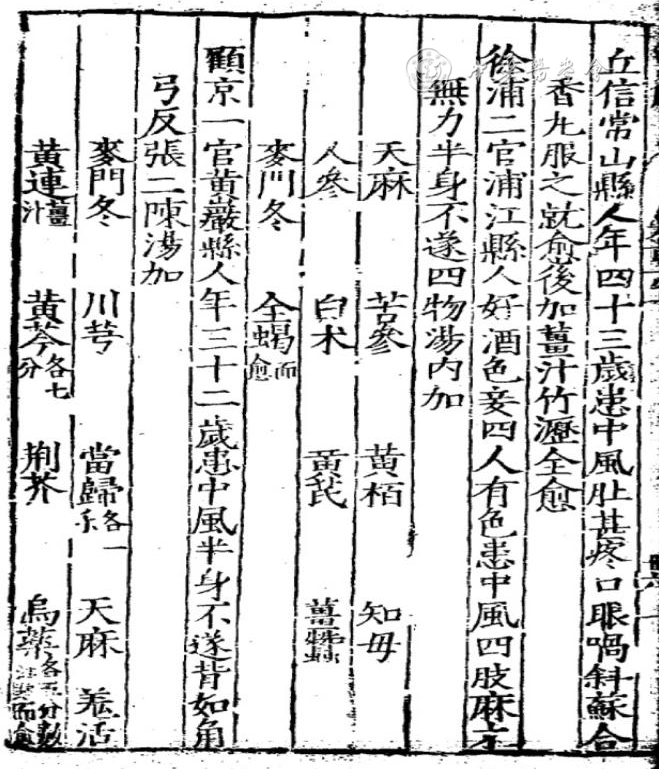 丘信常山縣人年四十三歲患中風肚甚疼口眼喎斜蘇合
香丸服之就愈後加薑汁竹瀝全愈
徐浦二官浦江縣人好酒色妾四人有色患中風四肢麻木
無力半身不遂四物湯內加
天麻 苦參 黃栢 知母
人參 白朮 黃芪 薑蠶
麥門冬 全蝎而愈
顧京一官黃巖縣人年三十二歲患中風半身不遂背如角
弓反張二陳湯加
麥門冬 川芎 當歸各一 天麻 羌活
黃連薑汁 黃芩各七分 荊芥 烏藥各五分 而愈